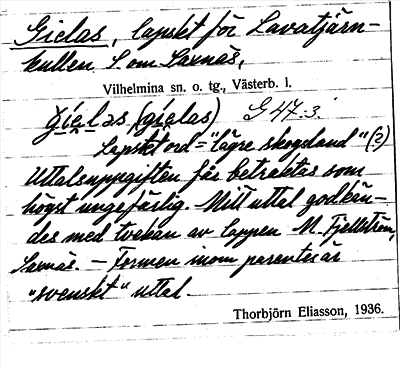 Gielas, lapskt för Lavatjärn-
kullen S. om Saxnäs,
Vilhelmina sn. o. tg., Västerb. l.
gielas (gielas) G 47:3.
Lapskt ord = "lägre skogsland" (?)
Uttalsuppgiften får betraktas som
högst ungefärlig. Mitt uttal godkän-
des med tvekan av lappen M. Fjellström,
Saxnäs. – Formen inom parentes är
"svenskt" uttal.
Thorbjörn Eliasson, 1936.